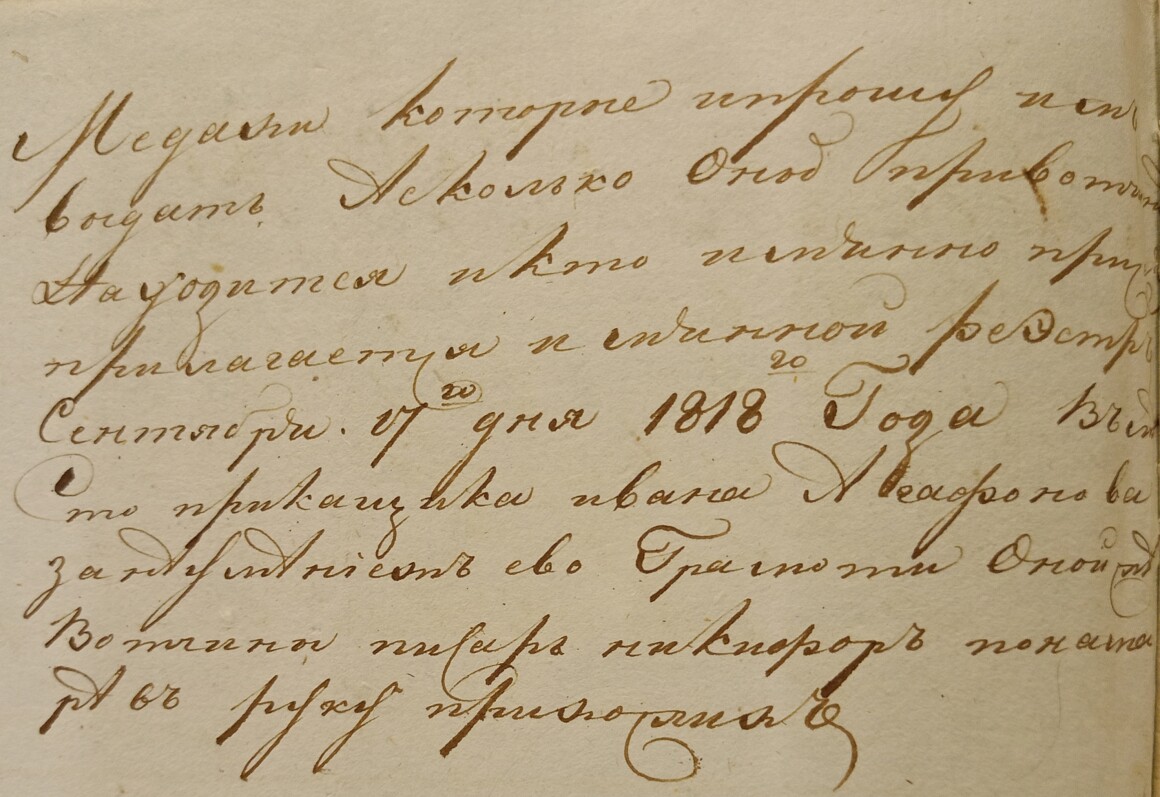 Медали которые ипрошу и имъ
выдать Асколько Оной привотчине
Находится икто имянно при
прилагается имянной реэстръ
Сентября. 17го дня 1818го Года Въме
сто прикащика ивана Агафонова
занеумениемъ ево Грамоти Оной
Вотчины писарь никифоръ
руку приложилъ